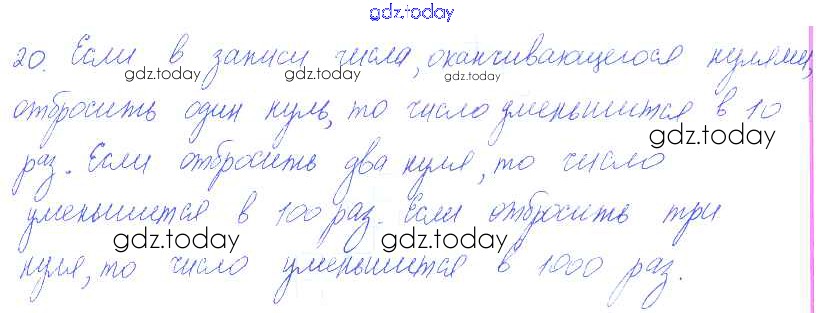 gdz.today
20. Если в записи числа, оканчивающегося нулями,
gdz.today gdz.today gdz.today
отбросить один нуль, то число уменьшится в 10
gdz.today
раз. Если отбросить два нуля, то число
уменьшится в 100 раз. Если отбросить три
gdz.today gdz.today gdz.today
нуля, то число уменьшится в 1000 раз.